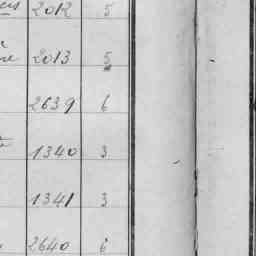 2012 5
2013 5
2639 6
1340 3
1341 3
2640 6